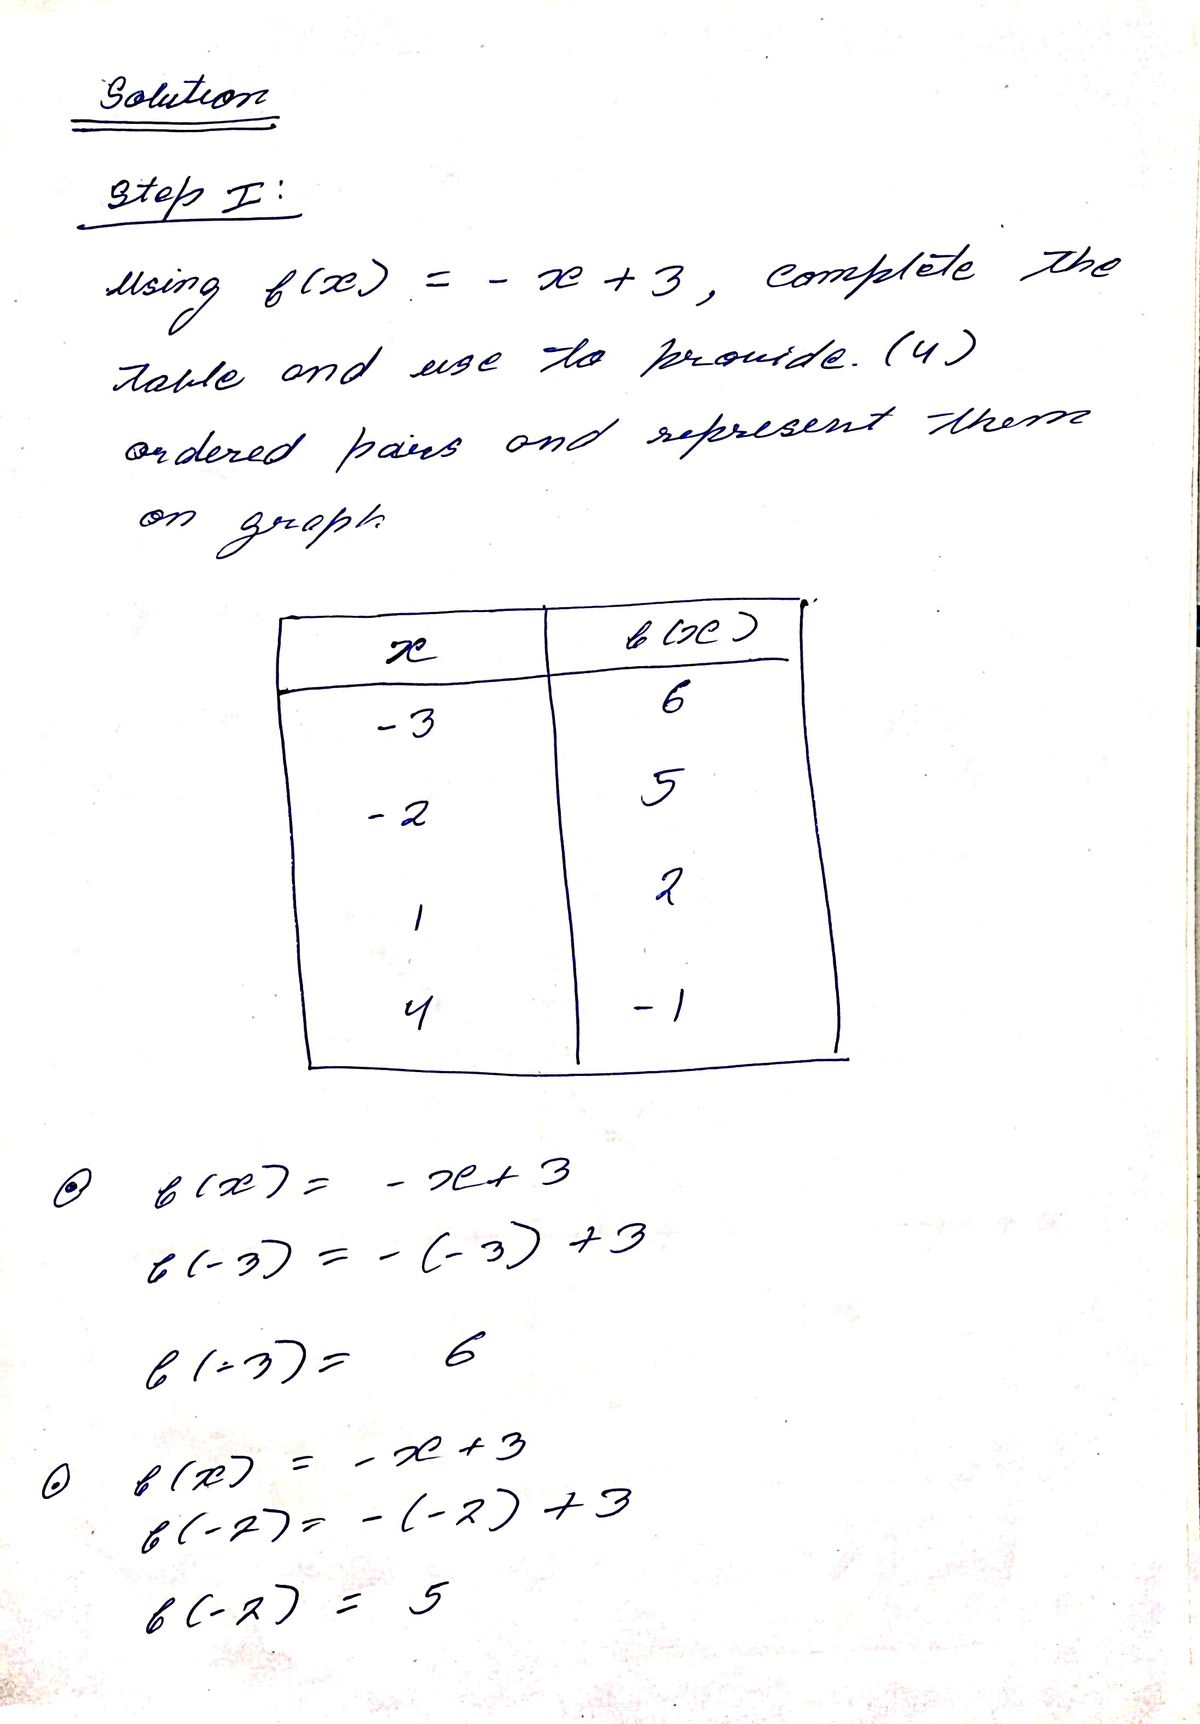 Solution
Step I:
Using f(x) = - x + 3, complete the
table and use to provide. (4)
ordered pairs and represent them
on graph
x f(x)
-3 6
-2 5
1 2
4 -1
f(x) = - x + 3
f(-3) = - (-3) + 3
f(-3) = 6
f(x) = - x + 3
f(-2) = - (-2) + 3
f(-2) = 5